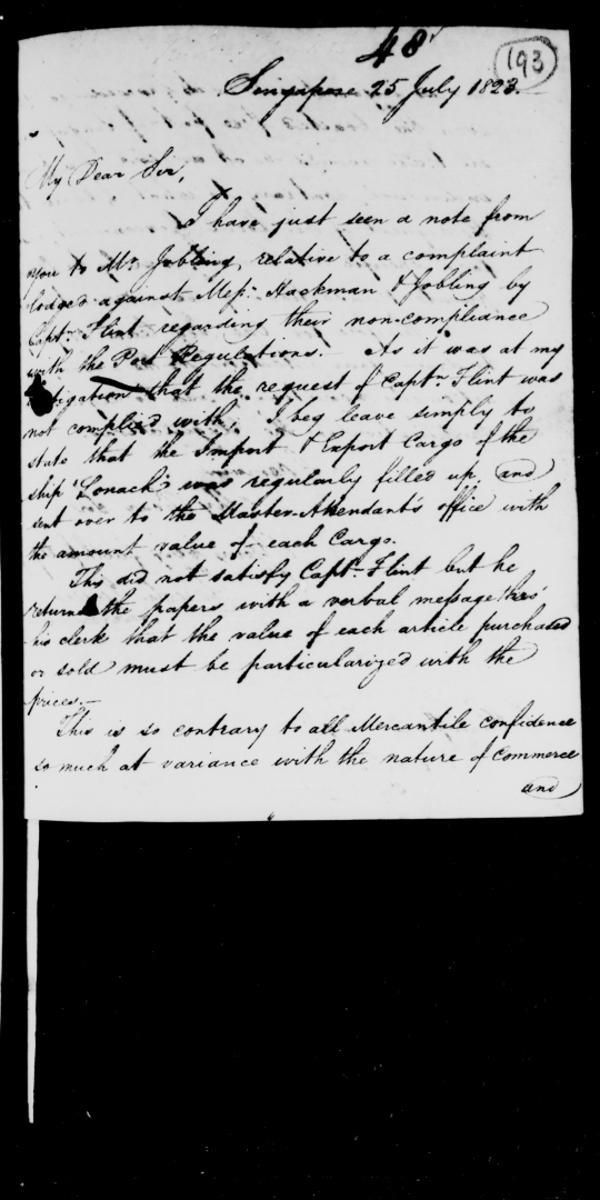 48
193
Singapore 25 July 1823.
My Dear Sir,
I have just seen a note from
you to Mr. Jobling, relative to a complaint
lodged against Messrs. Hackman & Jobling by
Captn. Flint regarding their non-compliance
with the Port Regulations. — As it was at my
instigation that the request of Captn. Flint was
not complied with, I beg leave simply to
state that the Import & Export Cargo of the
ship "Lonach" was regularly filled up, and
sent over to the Master-Attendant's office with
the amount value of each Cargo.
This did not satisfy Captn. Flint but he
returned the papers with a verbal message thro'
his clerk that the value of each article purchased
or sold must be particularized with the
prices. —
This is so contrary to all Mercantile confidence
so much at variance with the nature of Commerce
and